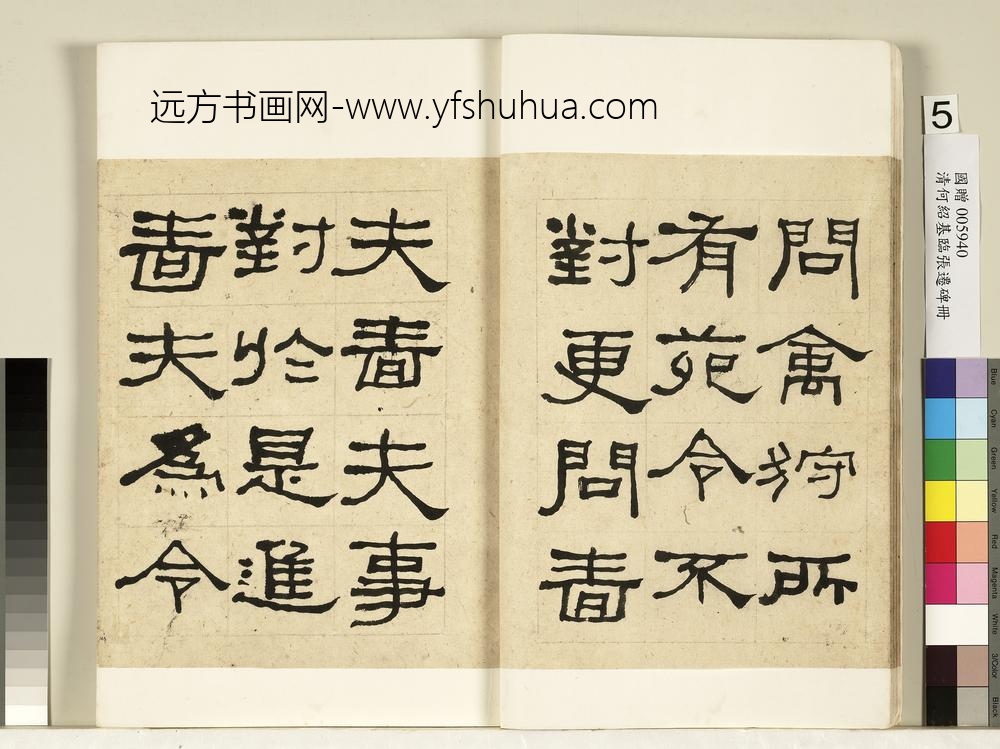 远方书画网-www.yfshuhua.com
問禽狩所
有苑令不
對更問嗇
夫嗇夫事
對於是進
嗇夫為令
5
國贈 005940
清何紹基臨張遷碑冊
Blue
Cyan
Green
Yellow
Red
Magenta
White
3/Color
Black